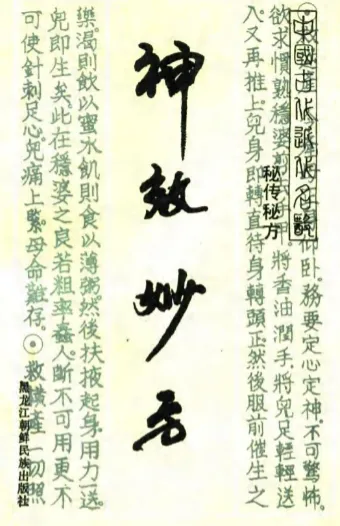 中國古代近代名醫
秘传秘方
神效妙方
卧。務要定心定神不可驚怖。
欲求慣熟穩婆剪去手甲。將香油潤手將兒足輕輕送
入又再推上兒身即轉直待身轉頭正然後服前催生之
藥渴則飲以蜜水飢則食以薄粥然後扶掖起身用力一送
兒即生矣此在穩婆之良若粗率蠢人斷不可用更不
可使針刺足心兒痛上緊。母命難存。⊙救橫產一切照
黑龙江朝鲜民族出版社